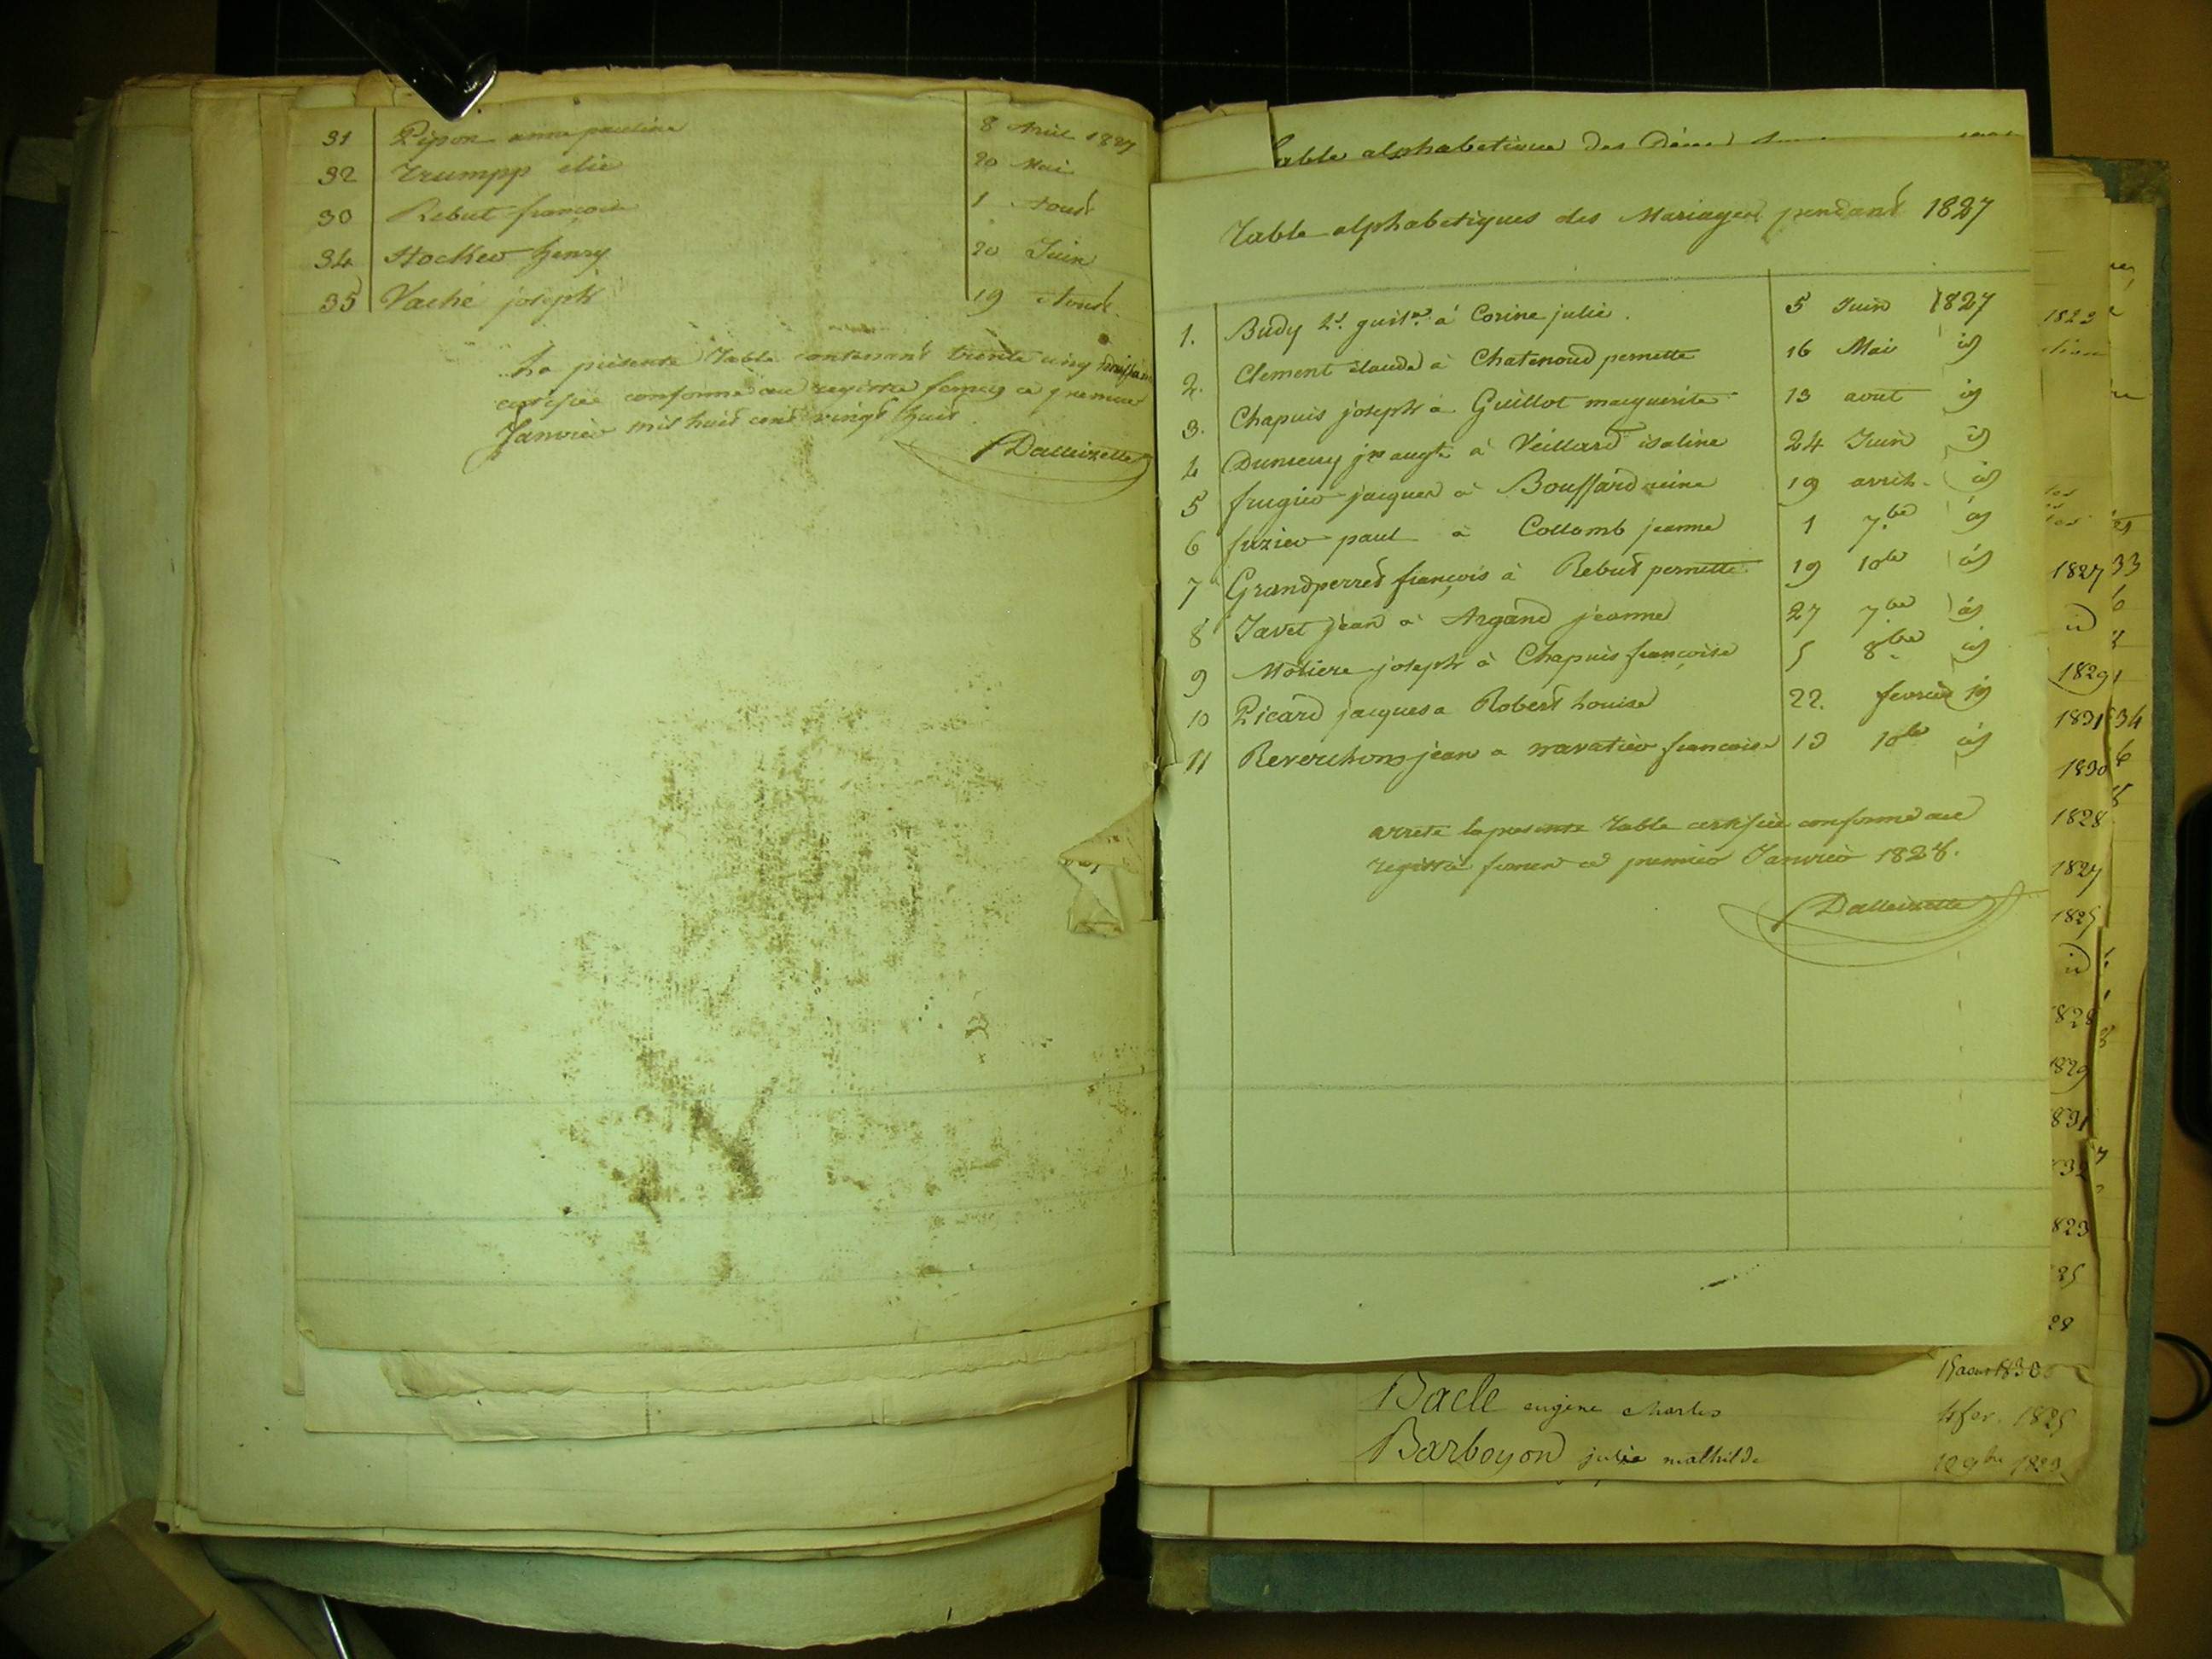 31 Pipon anne pauline 8 Avril 1827
32 Trumpp elie 20 Mai
30 Rebut françois 1 Aoust
34 Stocker henry 20 Juin
35 Vaché joseph 19 Aoust
La présente Table contenant trente cinq
certifiée conforme au registre fermé ce premier
Janvier mil huit cent vingt huit
Dalleizette
Table alphabetique des
Table alphabetiques des Mariages pendant 1827
1. Budy à Corine julie. 5 Juin 1827
2. Clement claude à Chatenoud pernette 16 Mai id
3. Chapuis joseph à Guillot marguerite 13 aout id
4 à Veillard isaline 24 Juin id
5 frugier jacques à Bouffard reine 19 avril id
6 fuzier paul à Collomb jeanne 1 7.bre id
7 Grandperret françois à Rebut pernette 19 10bre id
8 Javet jean à Argand jeanne 27 7.bre id
9 Moliere joseph à Chapuis françoise 5 8bre id
10 Picard jacques a Robert Louise 22. fevrier id
11 Reverchons jean a navatier francoise 13 10bre id
arrete la presente Table certifiée conforme au
registre fermer ce premier Janvier 1828.
Dalleizette
1823
1827 33
id
1829
1831 34
1830
1828
1827
1825
id
1828
1829
1831
32
823
25
28
15 aout 1830
Bacle eugene charles 4 fev. 1825
Barboyon julie mathilde 12 9bre 1829